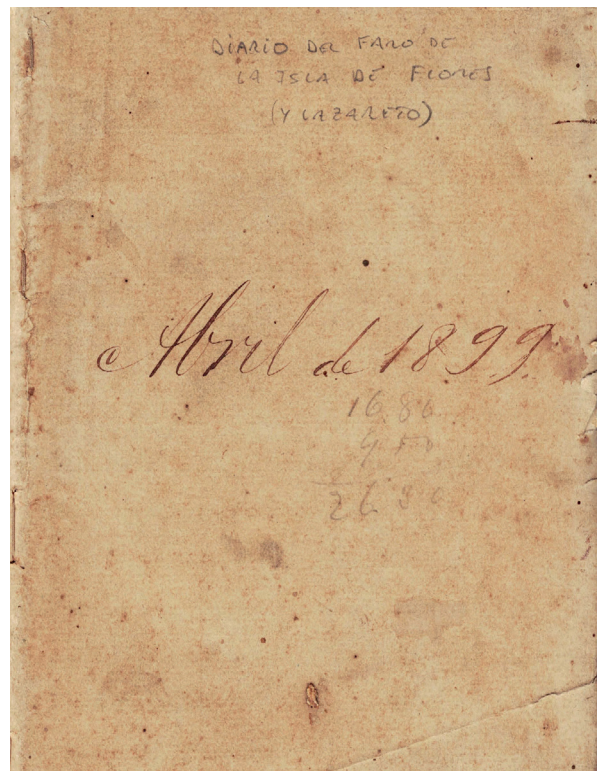 DIARIO DEL FARO DE
LA ISLA DE FLORES
(Y LAZARETO)
Abril de 1899
1680
2680